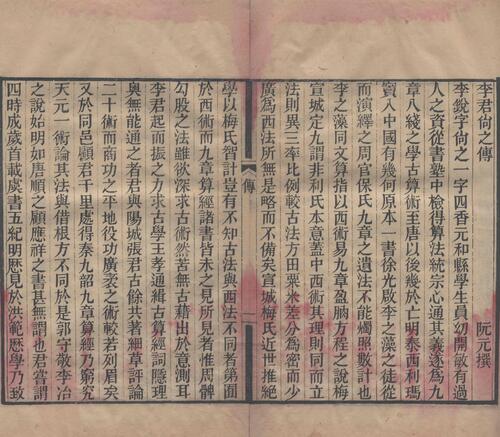 李君尚之傳　阮元撰
李銳字尚之一字四香元和縣學生員幼開敏有過
人之資從書塾中檢得算法統宗心通其義遂為九
章八綫之學古算術至唐以後幾於亡明泰西利瑪
竇入中國有幾何原本一書徐光啟李之藻之徒從
而演繹之周官保氏九章之遺法不能燭照數計也
李之藻同文算指以西術易九章盈朒方程之說梅
宣城定九謂非利氏本意蓋中西術其理則同而立
法則異三率比例較古法方田粟米差分為密而少
廣為西法所無是略而不備矣宣城梅氏近世推絕
傳
一
學以梅氏智計豈有不知古法與西法不同者第囿
於西術而九章算經諸書皆未之見所見者惟周髀
勾股之法雖欲深求古術然苦無古藉出於意測耳
李君起而振之力求古學王孝通緝古算經詞隱理
奧無能通之者君與陽城張君古餘共著細草評論
二十術而商功之平地役功廣袤之術較若列眉矣
又於同邑顧君千里處得秦九韶九章算經乃窮究
天元一術論其法與借根方不同於是郭守敬李冶
之說始明如唐順之顧應祥之書甚無謂也君嘗謂
四時成歲首載虞書五紀明厯見於洪範厯學乃致